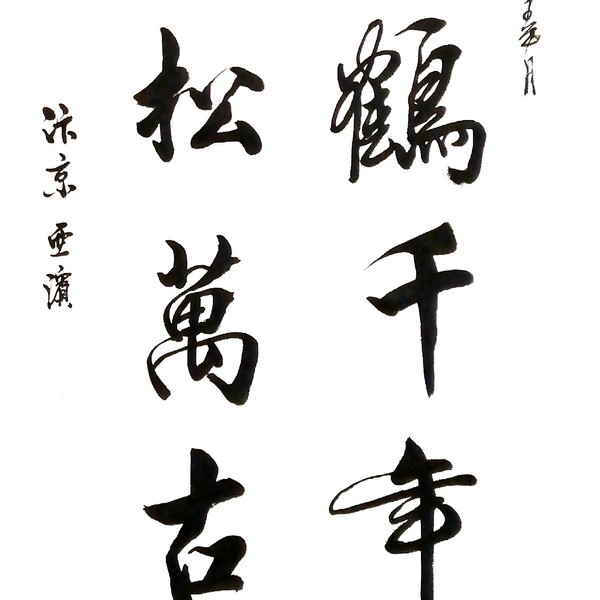 月
鶴千年
松萬古
汴京亚濱